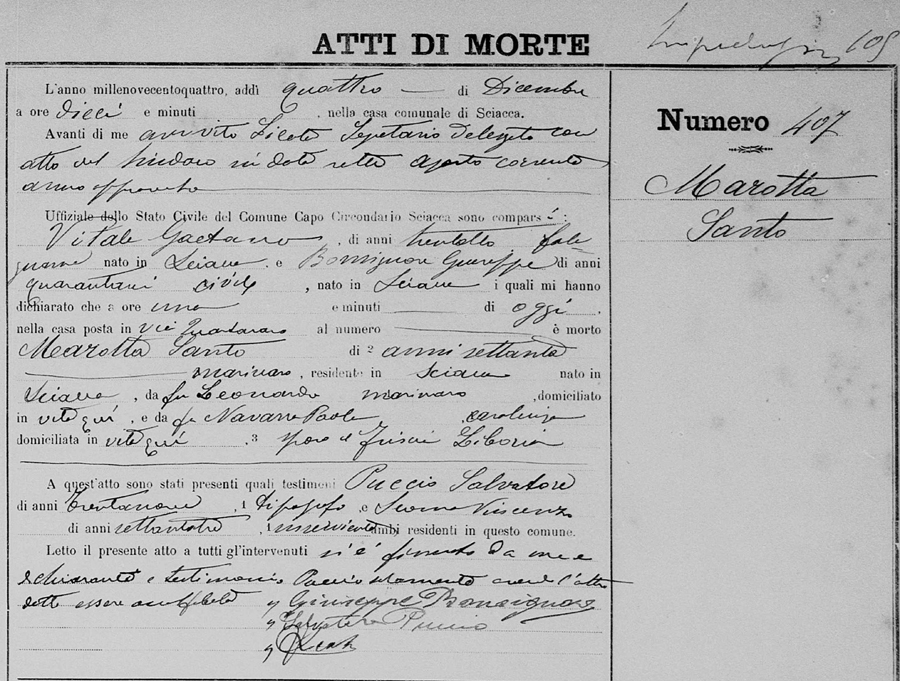 ATTI DI MORTE
105
L'anno millenovecentoquattro, addì quattro — di Dicembre
a ore dieci e minuti , nella casa comunale di Sciacca.
Avanti di me avvito Licata Segretario delegato con
atto del Sindaco in data sette Agosto corrente
anno approvato
Uffiziale dello Stato Civile del Comune Capo Circondario Sciacca sono comparsi:
Vitale Gaetano, di anni trentotto fale
gname nato in Sciacca e Bonsignore Giuseppe di anni
quarantasei civile, nato in Sciacca i quali mi hanno
dichiarato che a ore una e minuti di oggi.
nella casa posta in via al numero è morto
Marotta Santo di 2 anni settanta
marinaro, residente in Sciacca nato in
Sciacca, da fu Leonardo marinaro, domiciliato
in vita qui, e da fu Navarra Paola casalinga
domiciliata in vita qui. 3 sposo di Friscia Liboria
A quest'atto sono stati presenti quali testimoni Puccio Salvatore
di anni trentanove, 4 tipografo, e Vincenzo
di anni settantatre, 4 ambi residenti in questo comune.
Letto il presente atto a tutti gl'intervenuti si è firmato da me e
dichiarante e testimonio Puccio solamente avend l'altro
detto essere analfabeta
Giuseppe Bonsignore
Salvatore Puccio
Licata
Numero 407
Marotta
Santo